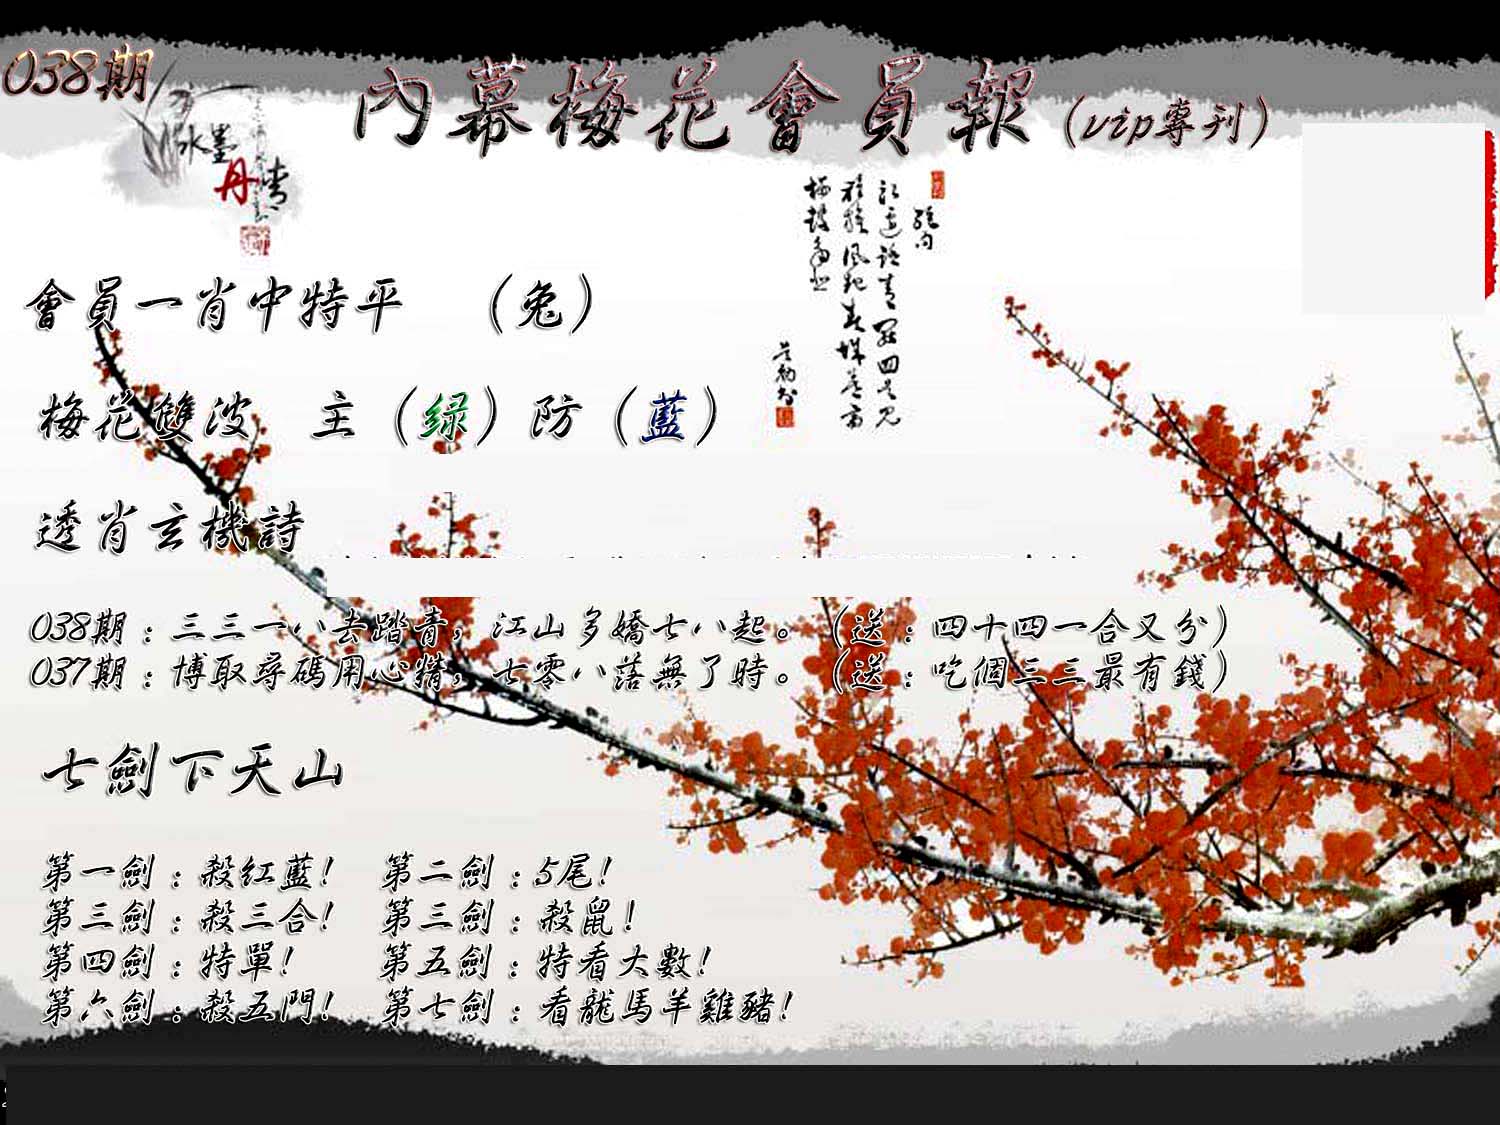 038期
內幕梅花會員報（vip專刊）
水墨
丹青
會員一肖中特平　（兔）
梅花雙波　主（绿）防（藍）
透肖玄機詩
038期：三三一八去踏青，江山多嬌七八起。（送：四十四一合又分）
037期：博取尋碼用心精，七零八落無了時。（送：吃個三三最有錢）
七劍下天山
第一劍：殺紅藍！　第二劍：5尾！
第三劍：殺三合！　第三劍：殺鼠！
第四劍：特單！　第五劍：特看大數！
第六劍：殺五門！　第七劍：看龍馬羊雞豬！